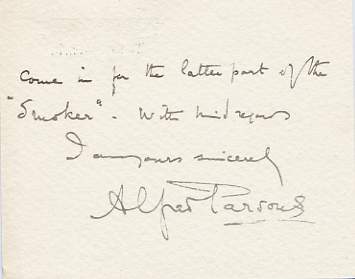 come in for the latter part of the
"Smoker". With kind regards
I am yours sincerely
Alfred Parsons